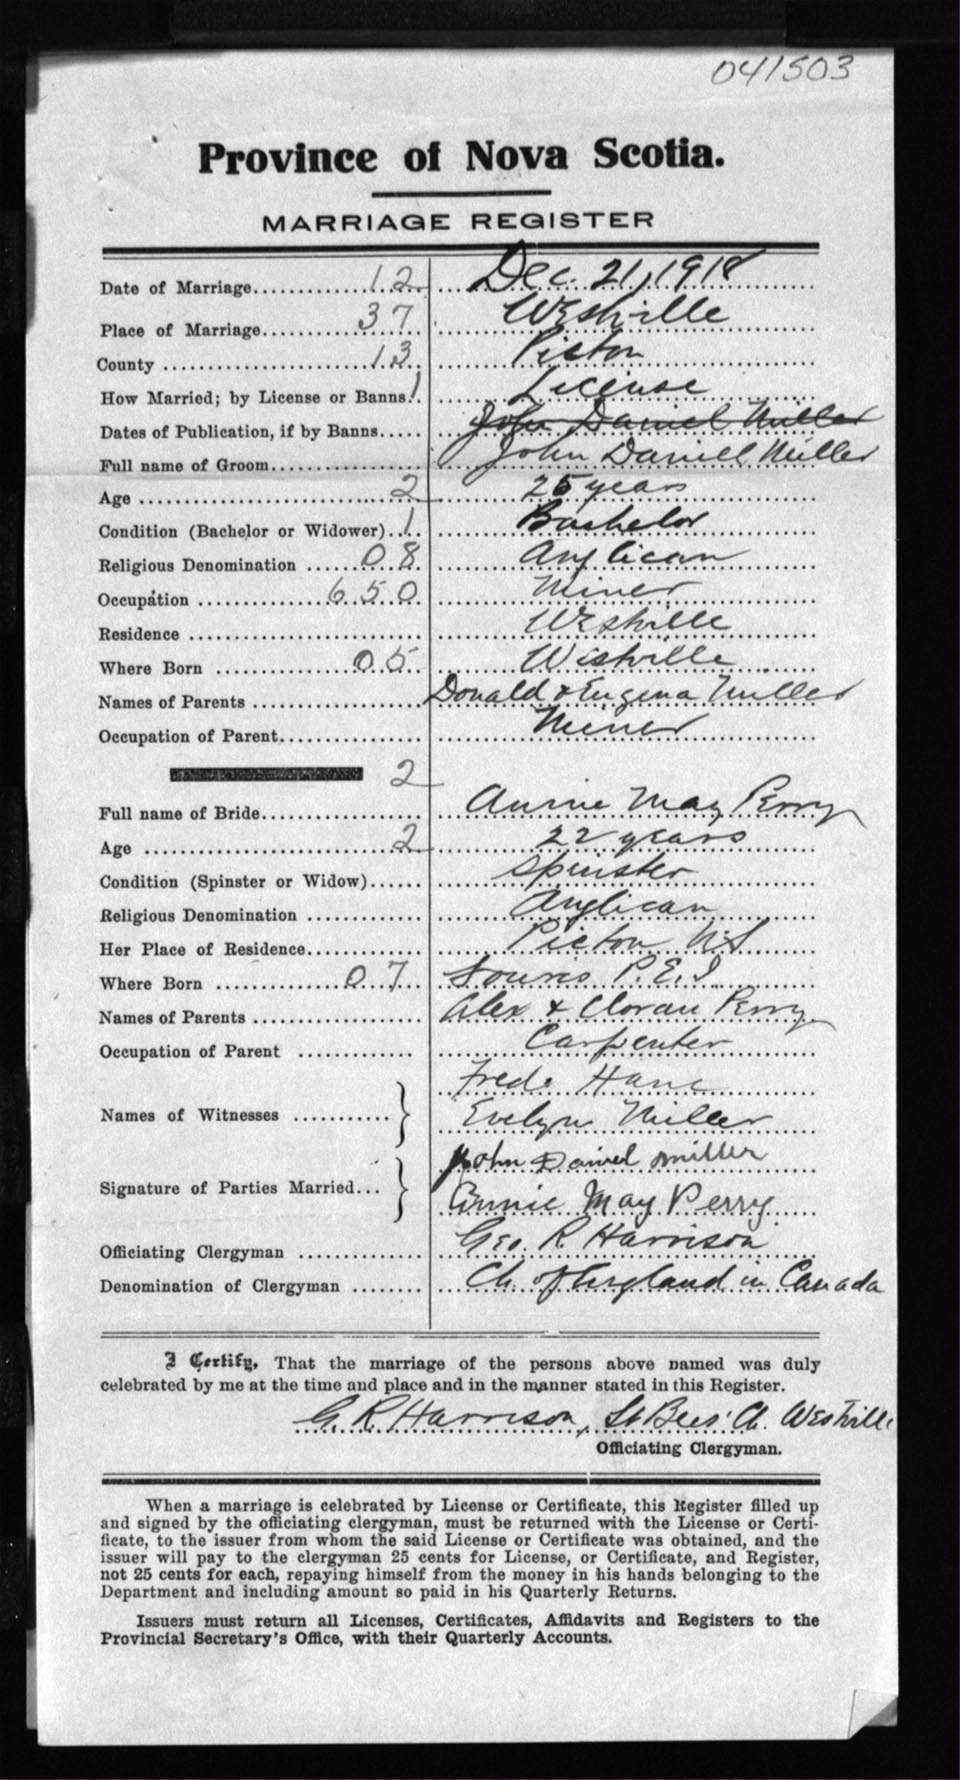 041503
Province of Nova Scotia.
MARRIAGE REGISTER
Date of Marriage 12 Dec. 21, 1918
Place of Marriage 37 Westville
County 13 Picton
How Married; by License or Banns. 1 License
Dates of Publication, if by Banns John Daniel Miller
Full name of Groom John Daniel Miller
Age 2 25 years
Condition (Bachelor or Widower) 1 Bachelor
Religious Denomination 08 Anglican
Occupation 650 Miner
Residence Westville
Where Born 05 Westville
Names of Parents Donald & Eugena Miller
Occupation of Parent Miner
2
Full name of Bride Annie May Perry
Age 2 22 years
Condition (Spinster or Widow) Spinster
Religious Denomination Anglican
Her Place of Residence Picton N.S
Where Born 07 Souris P.E.I.
Names of Parents Alex & Perry
Occupation of Parent Carpenter
Fred.
Names of Witnesses Evelyn Miller
John Daniel Miller
Signature of Parties Married Annie May Perry
Officiating Clergyman Geo. R. Harrison
Denomination of Clergyman Ch. of England in Canada
I Certify, That the marriage of the persons above named was duly
celebrated by me at the time and place and in the manner stated in this Register.
G. R. Harrison, St Bees' Ch. Westville
Officiating Clergyman.
When a marriage is celebrated by License or Certificate, this Register filled up
and signed by the officiating clergyman, must be returned with the License or Certi-
ficate, to the issuer from whom the said License or Certificate was obtained, and the
issuer will pay to the clergyman 25 cents for License, or Certificate, and Register,
not 25 cents for each, repaying himself from the money in his hands belonging to the
Department and including amount so paid in his Quarterly Returns.
Issuers must return all Licenses, Certificates, Affidavits and Registers to the
Provincial Secretary's Office, with their Quarterly Accounts.